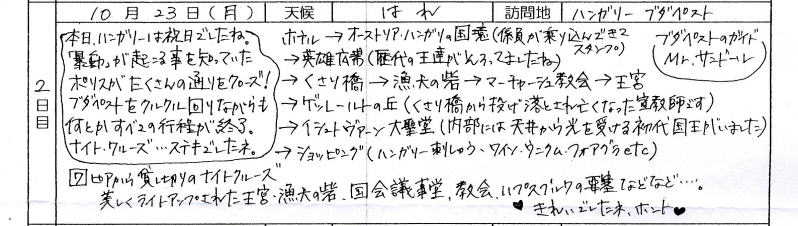 10月23日(月) 天候 はれ 訪問地 ハンガリー ブダペスト
2日目
本日、ハンガリーは祝日でしたね。
「暴動」が起こる事を知っていた
ポリスがたくさんの通りをクローズ!
ブダペストをクルクル回りながらも
何とかすべての行程が終了。
ナイト・クルーズ…ステキでしたネ。
ホテル→オーストリア・ハンガリの国境(係員が乗り込んできてスタンプ)
→英雄広場(歴代の王達がそろってましたね)
→くさり橋→漁夫の砦→マーチャーシュ教会→王宮
→ゲレールトの丘(くさり橋から投げ落とされ亡くなった宣教師です)
→イシュトヴァーン大聖堂(内部には天井から光を受ける初代国王がいました)
→ショッピング(ハンガリー刺しゅう、ワイン・ウニクム・フォアグラetc)
ブダペストのガイド
Mr. サンドール
ピアから貸し切りのナイトクルーズ
美しくライトアップされた王宮・漁夫の砦、国会議事堂、教会、ハプスブルクの要塞などなど….
きれいでしたネ、ホント♥